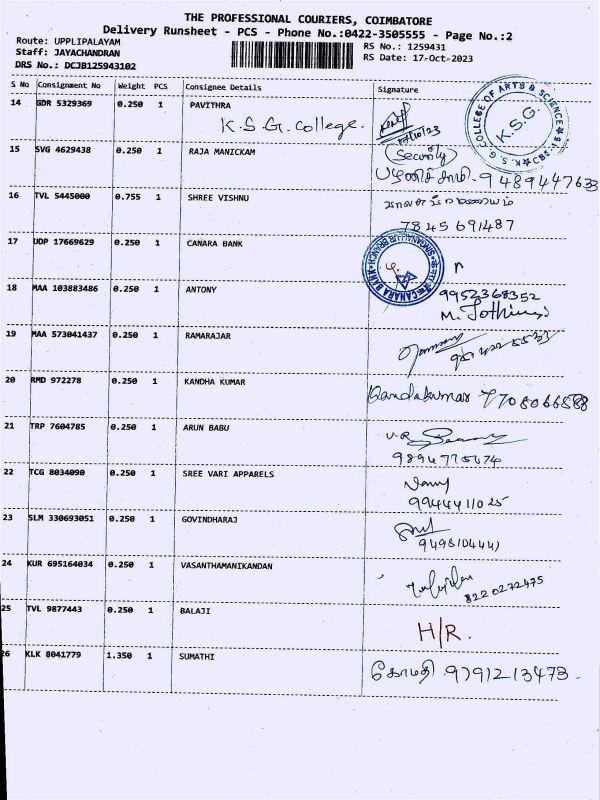 THE PROFESSIONAL COURIERS, COIMBATORE
Delivery Runsheet - PCS - Phone No.:0422-3505555 - Page No.:2
Route: UPPLIPALAYAM
RS No.: 1259431
Staff: JAYACHANDRAN
RS Date: 17-Oct-2023
DRS No.: DCJB125943102
S No Consignment No Weight PCS Consignee Details Signature
14 GDR 5329369 0.250 1 PAVITHRA
K.S.G. College.
COLLEGE OF ARTS & SCIENCE
K.S.G.
15 SVG 4629438 0.250 1 RAJA MANICKAM (Security)
பழனிச்சாமி - 9489447633
16 TVL 5445000 0.755 1 SHREE VISHNU
7845 691487
17 UDP 17669629 0.250 1 CANARA BANK
SINGANALLUR BRANCH
CANARA BANK
18 MAA 103883486 0.250 1 ANTONY 9952368352
M. Jothi
19 MAA 573041437 0.250 1 RAMARAJAR
20 RMD 972278 0.250 1 KANDHA KUMAR Kandakumar 7708066588
21 TRP 7604785 0.250 1 ARUN BABU
9894775674
22 TCG 8034090 0.250 1 SREE VARI APPARELS
9944411025
23 SLM 330693051 0.250 1 GOVINDHARAJ
9498104441
24 KUR 695164034 0.250 1 VASANTHAMANIKANDAN
8220272475
25 TVL 9877443 0.250 1 BALAJI H/R.
26 KLK 8041779 1.350 1 SUMATHI கோமதி 9791213473.